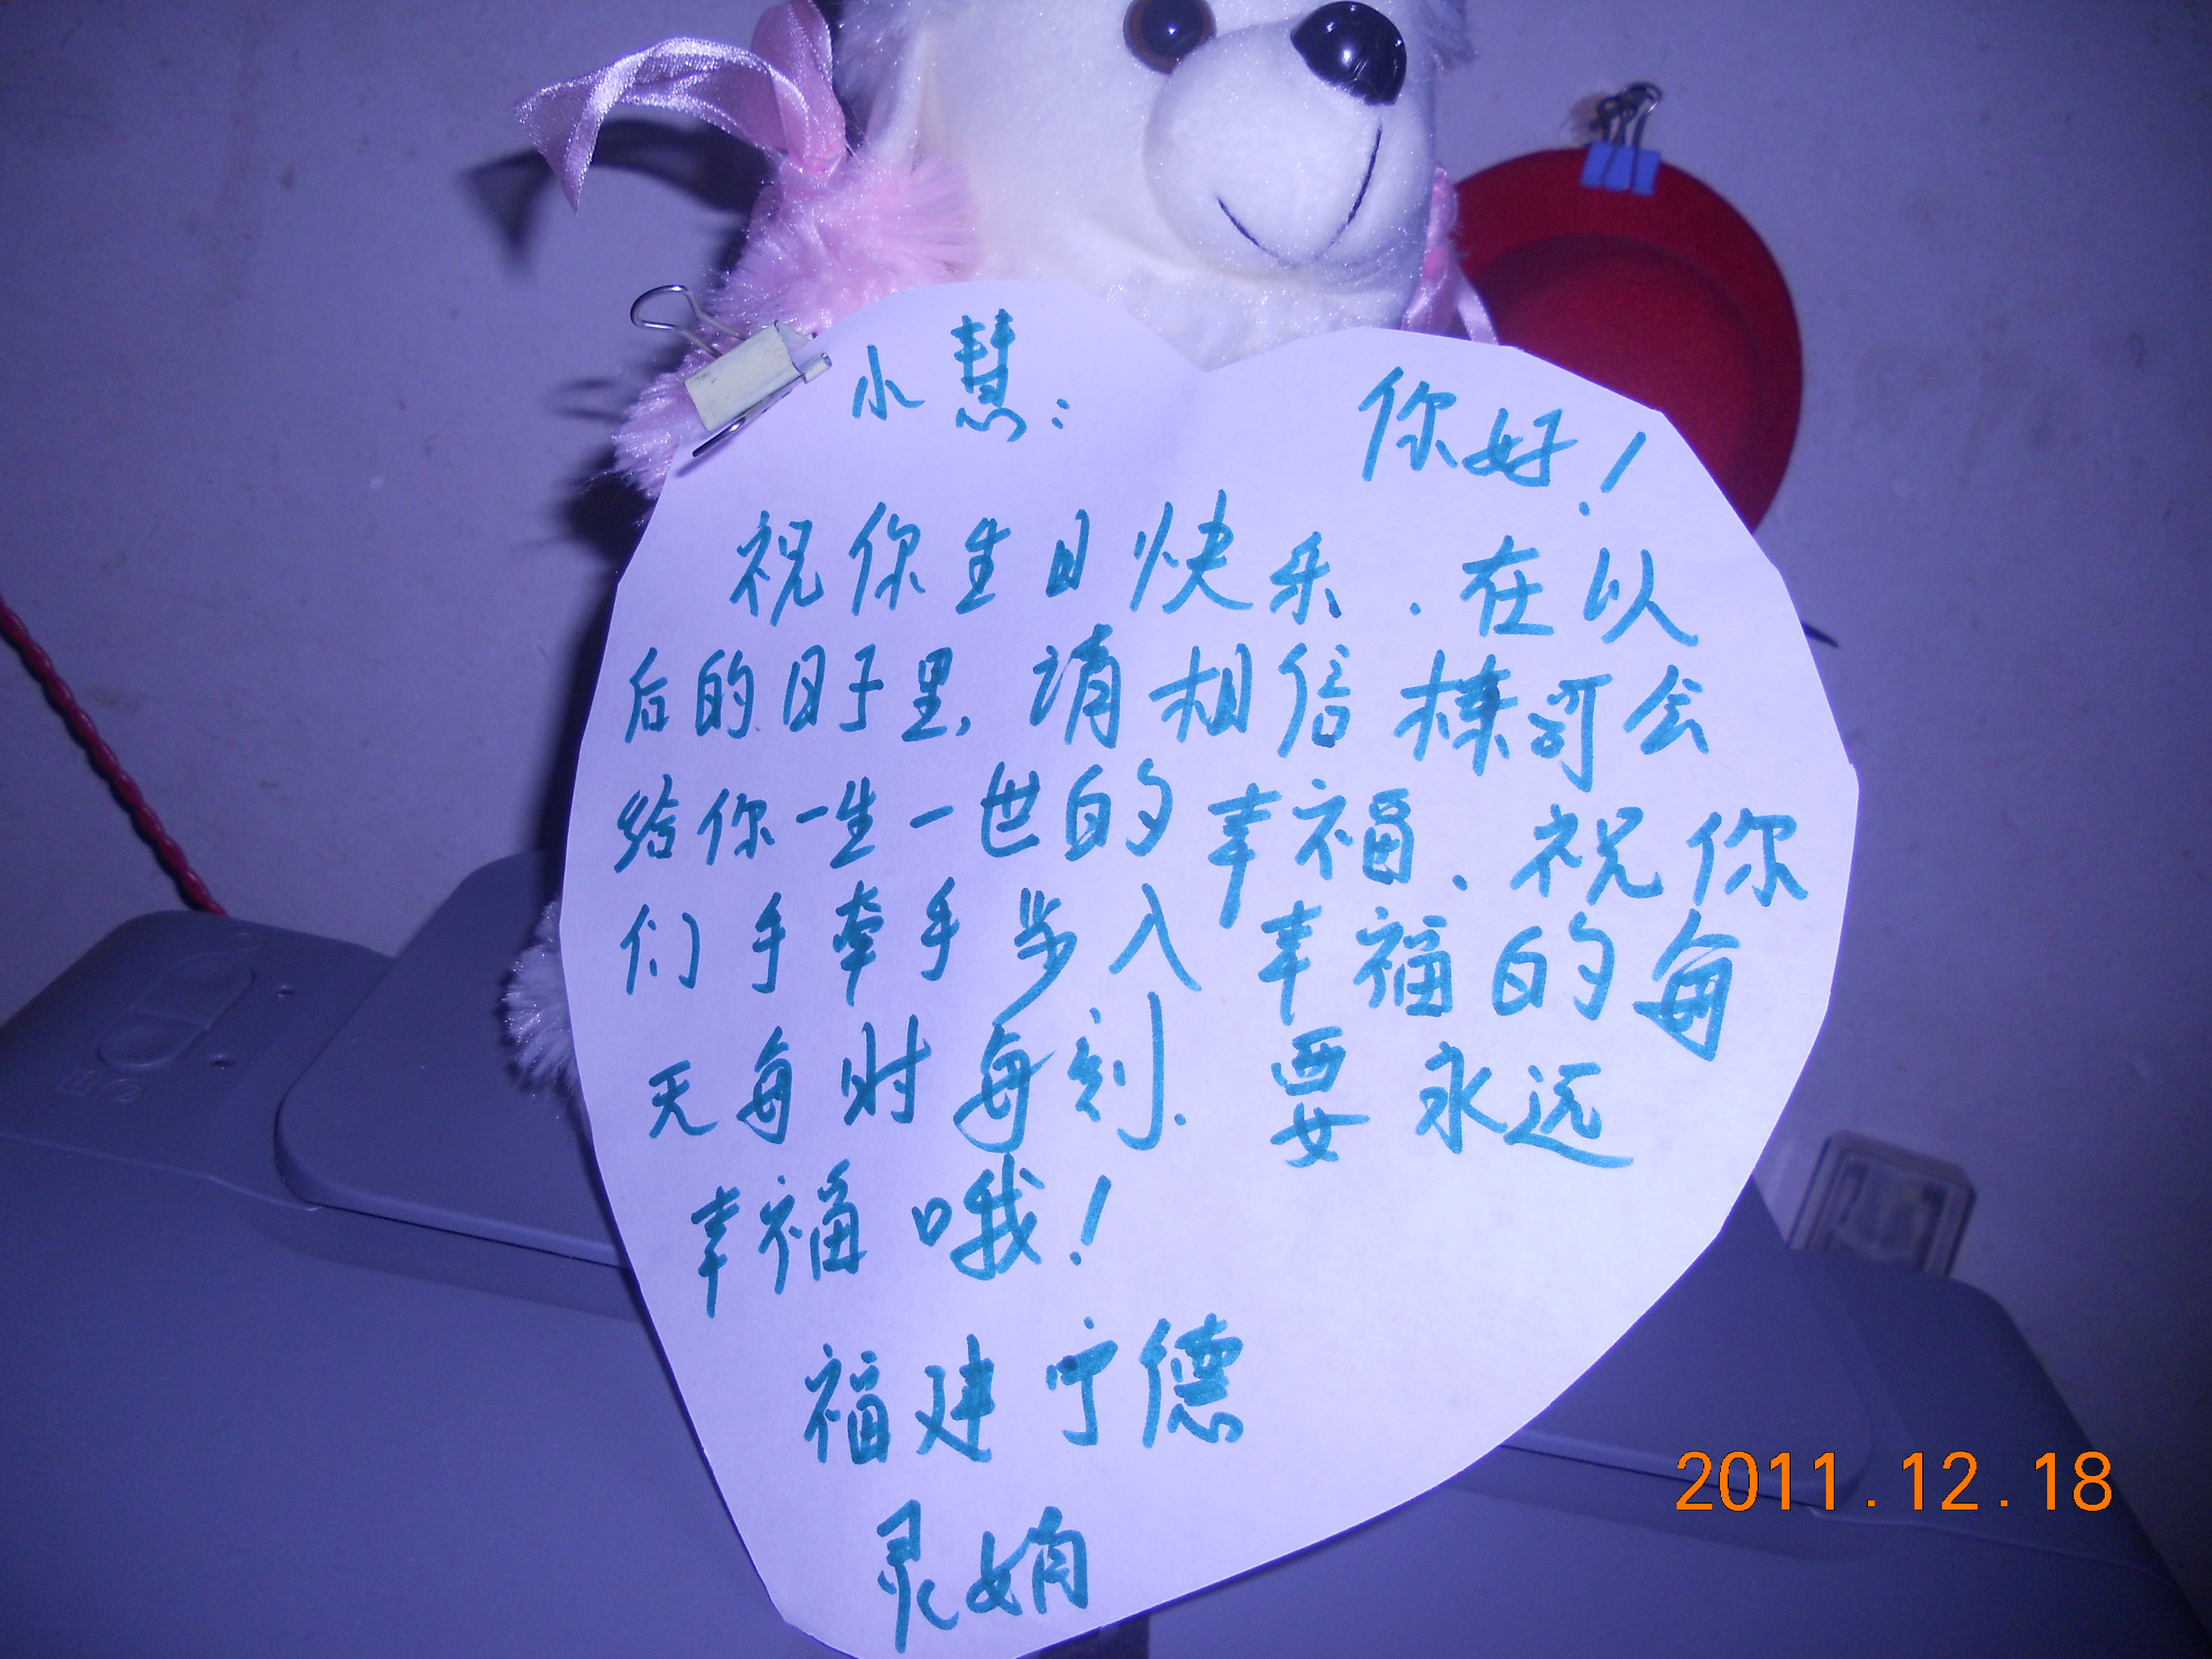 小慧：
你好！
祝你生日快乐.在以
后的日子里,请相信栋哥会
给你一生一世的幸福.祝你
们手牵手步入幸福的每
天每时每刻.要永远
幸福哦！
福建宁德
灵娟
2011.12.18